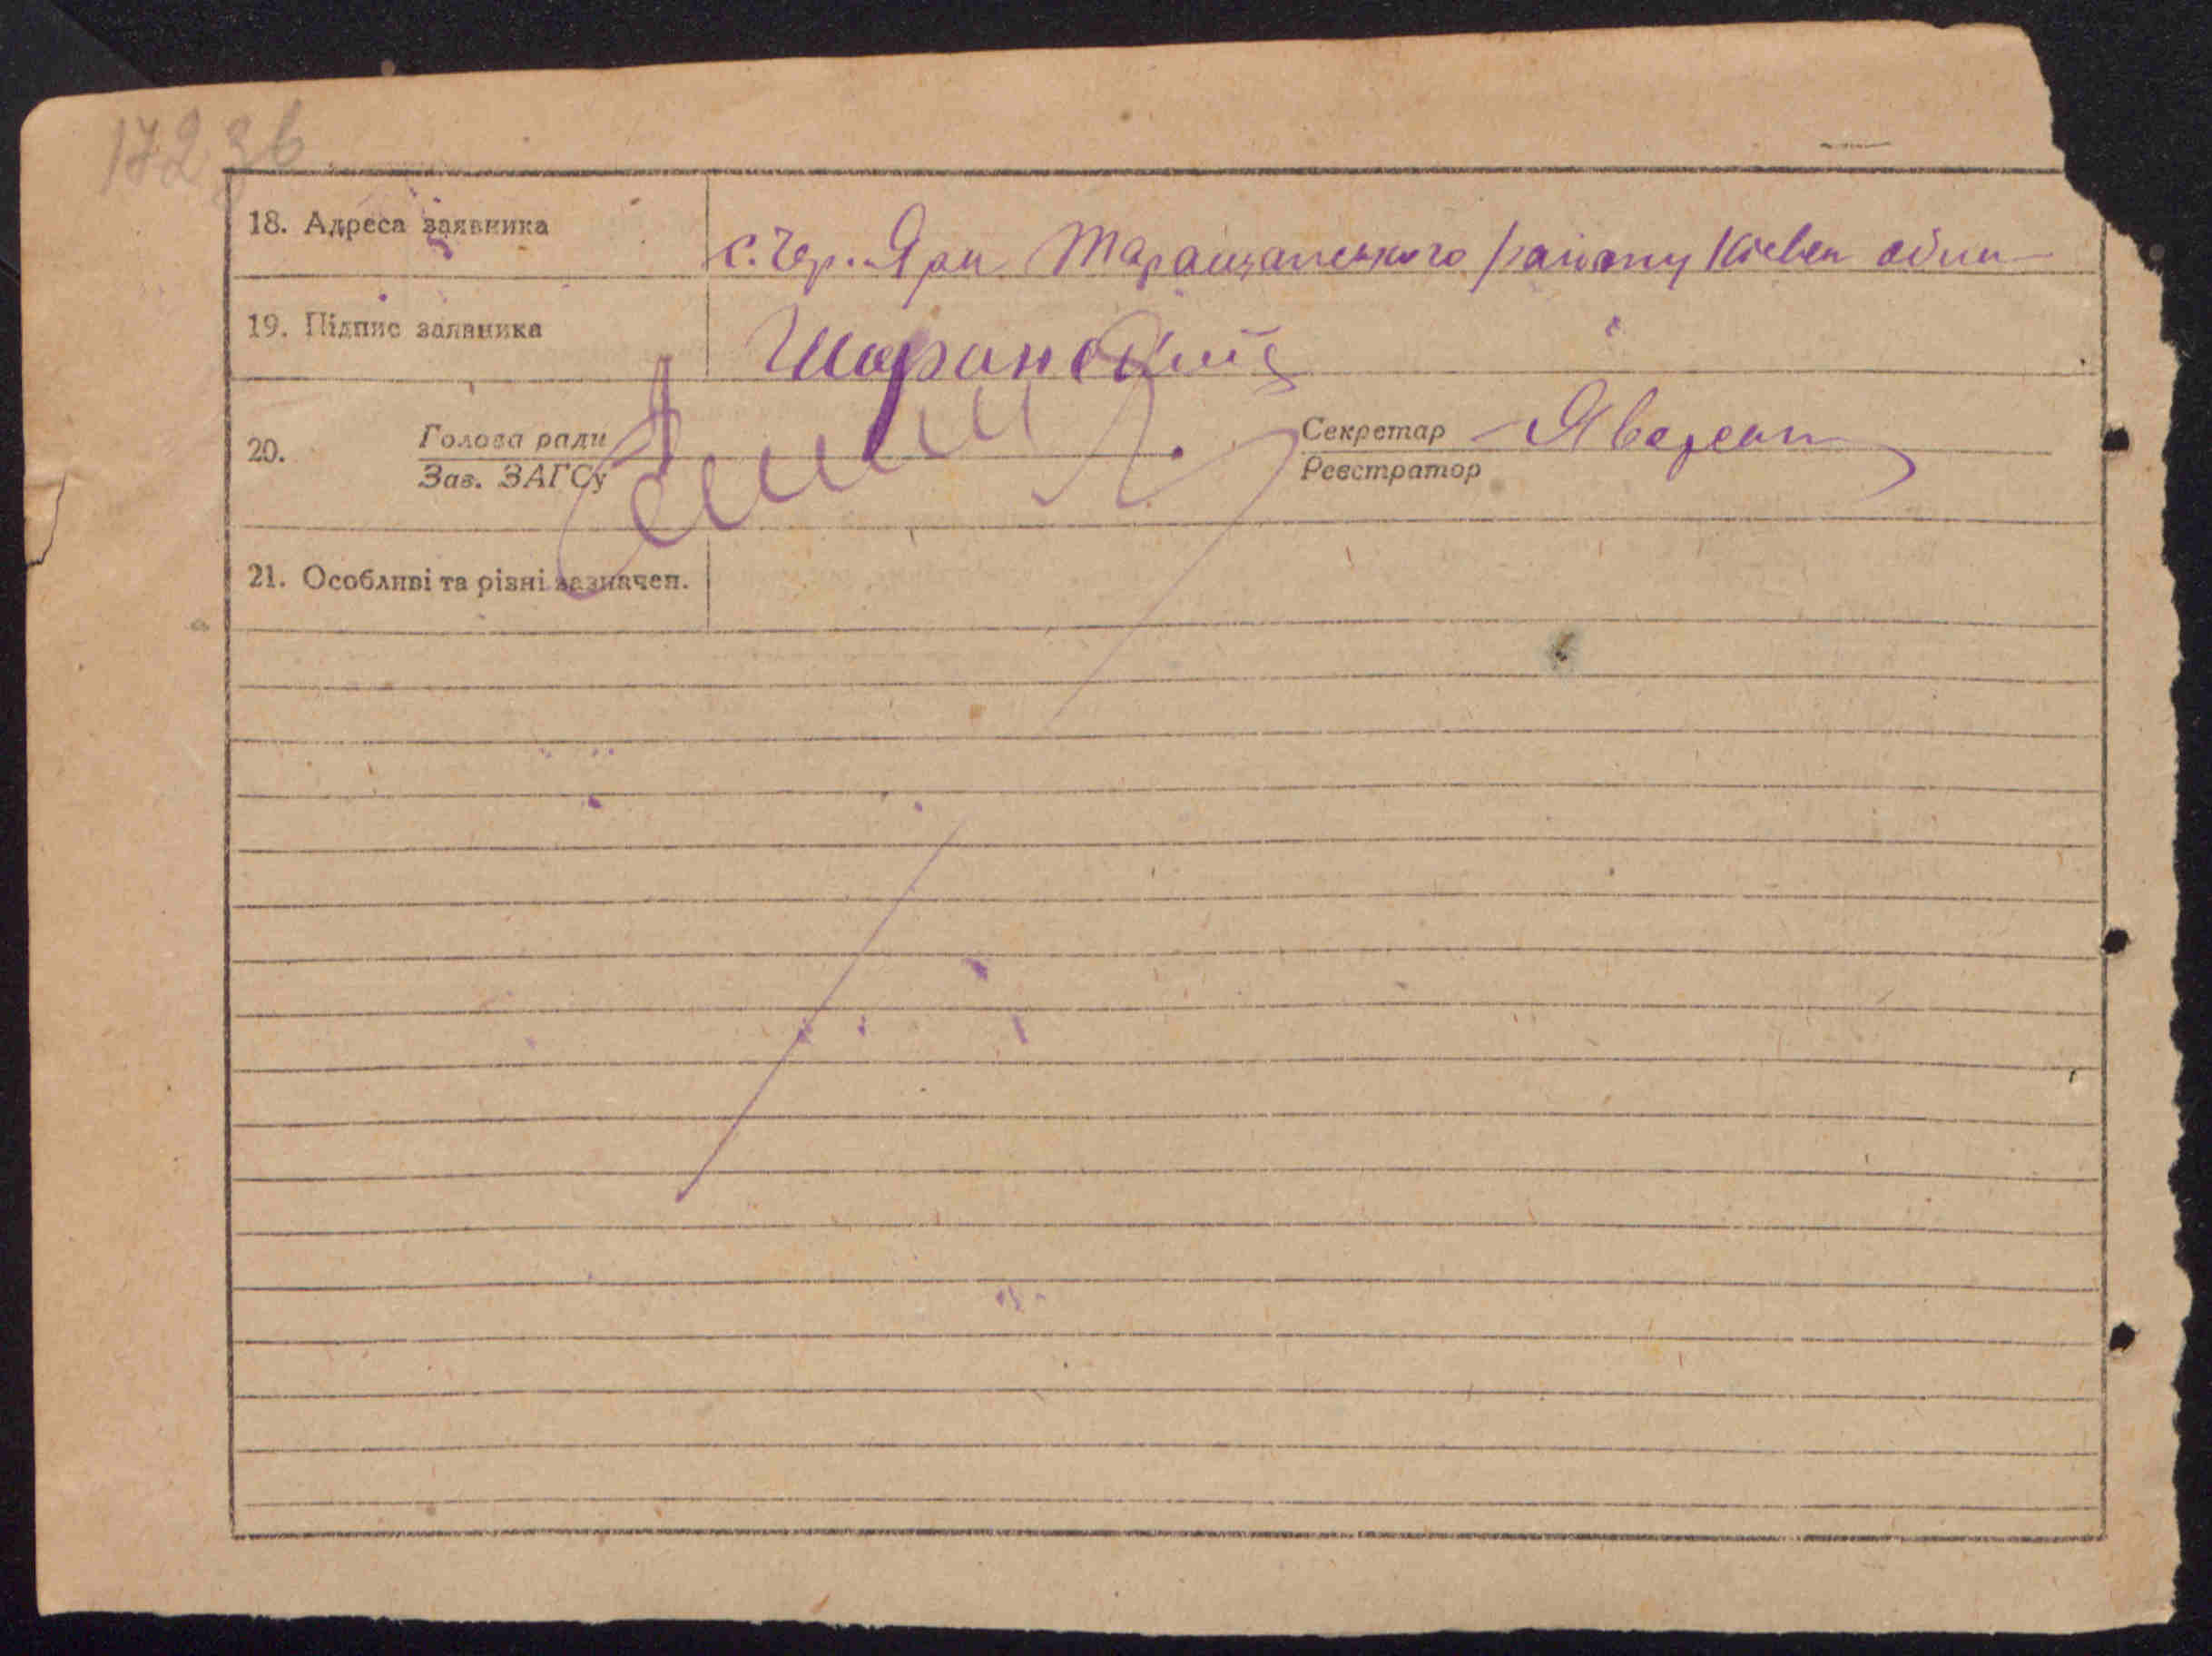 172 зв
18. Адреса заявника
с. Чер. Яри Таращанського району Київск
19. Підпис заявника
20. Голова ради
Зав. ЗАГСу
Секретар
Реєстратор
21. Особливі та різні зазначен.